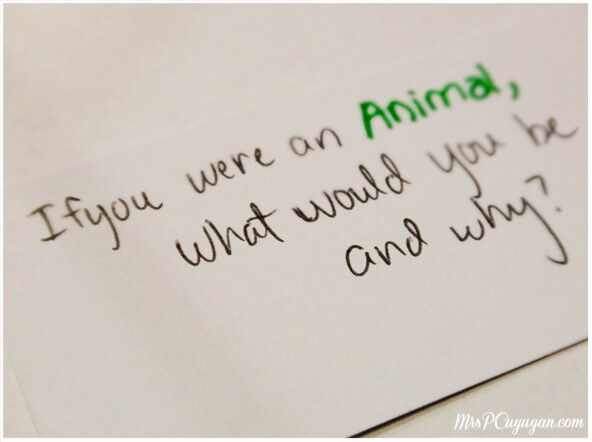 If you were an Animal,
what would you be
and why?
MrsPCuyugan.com